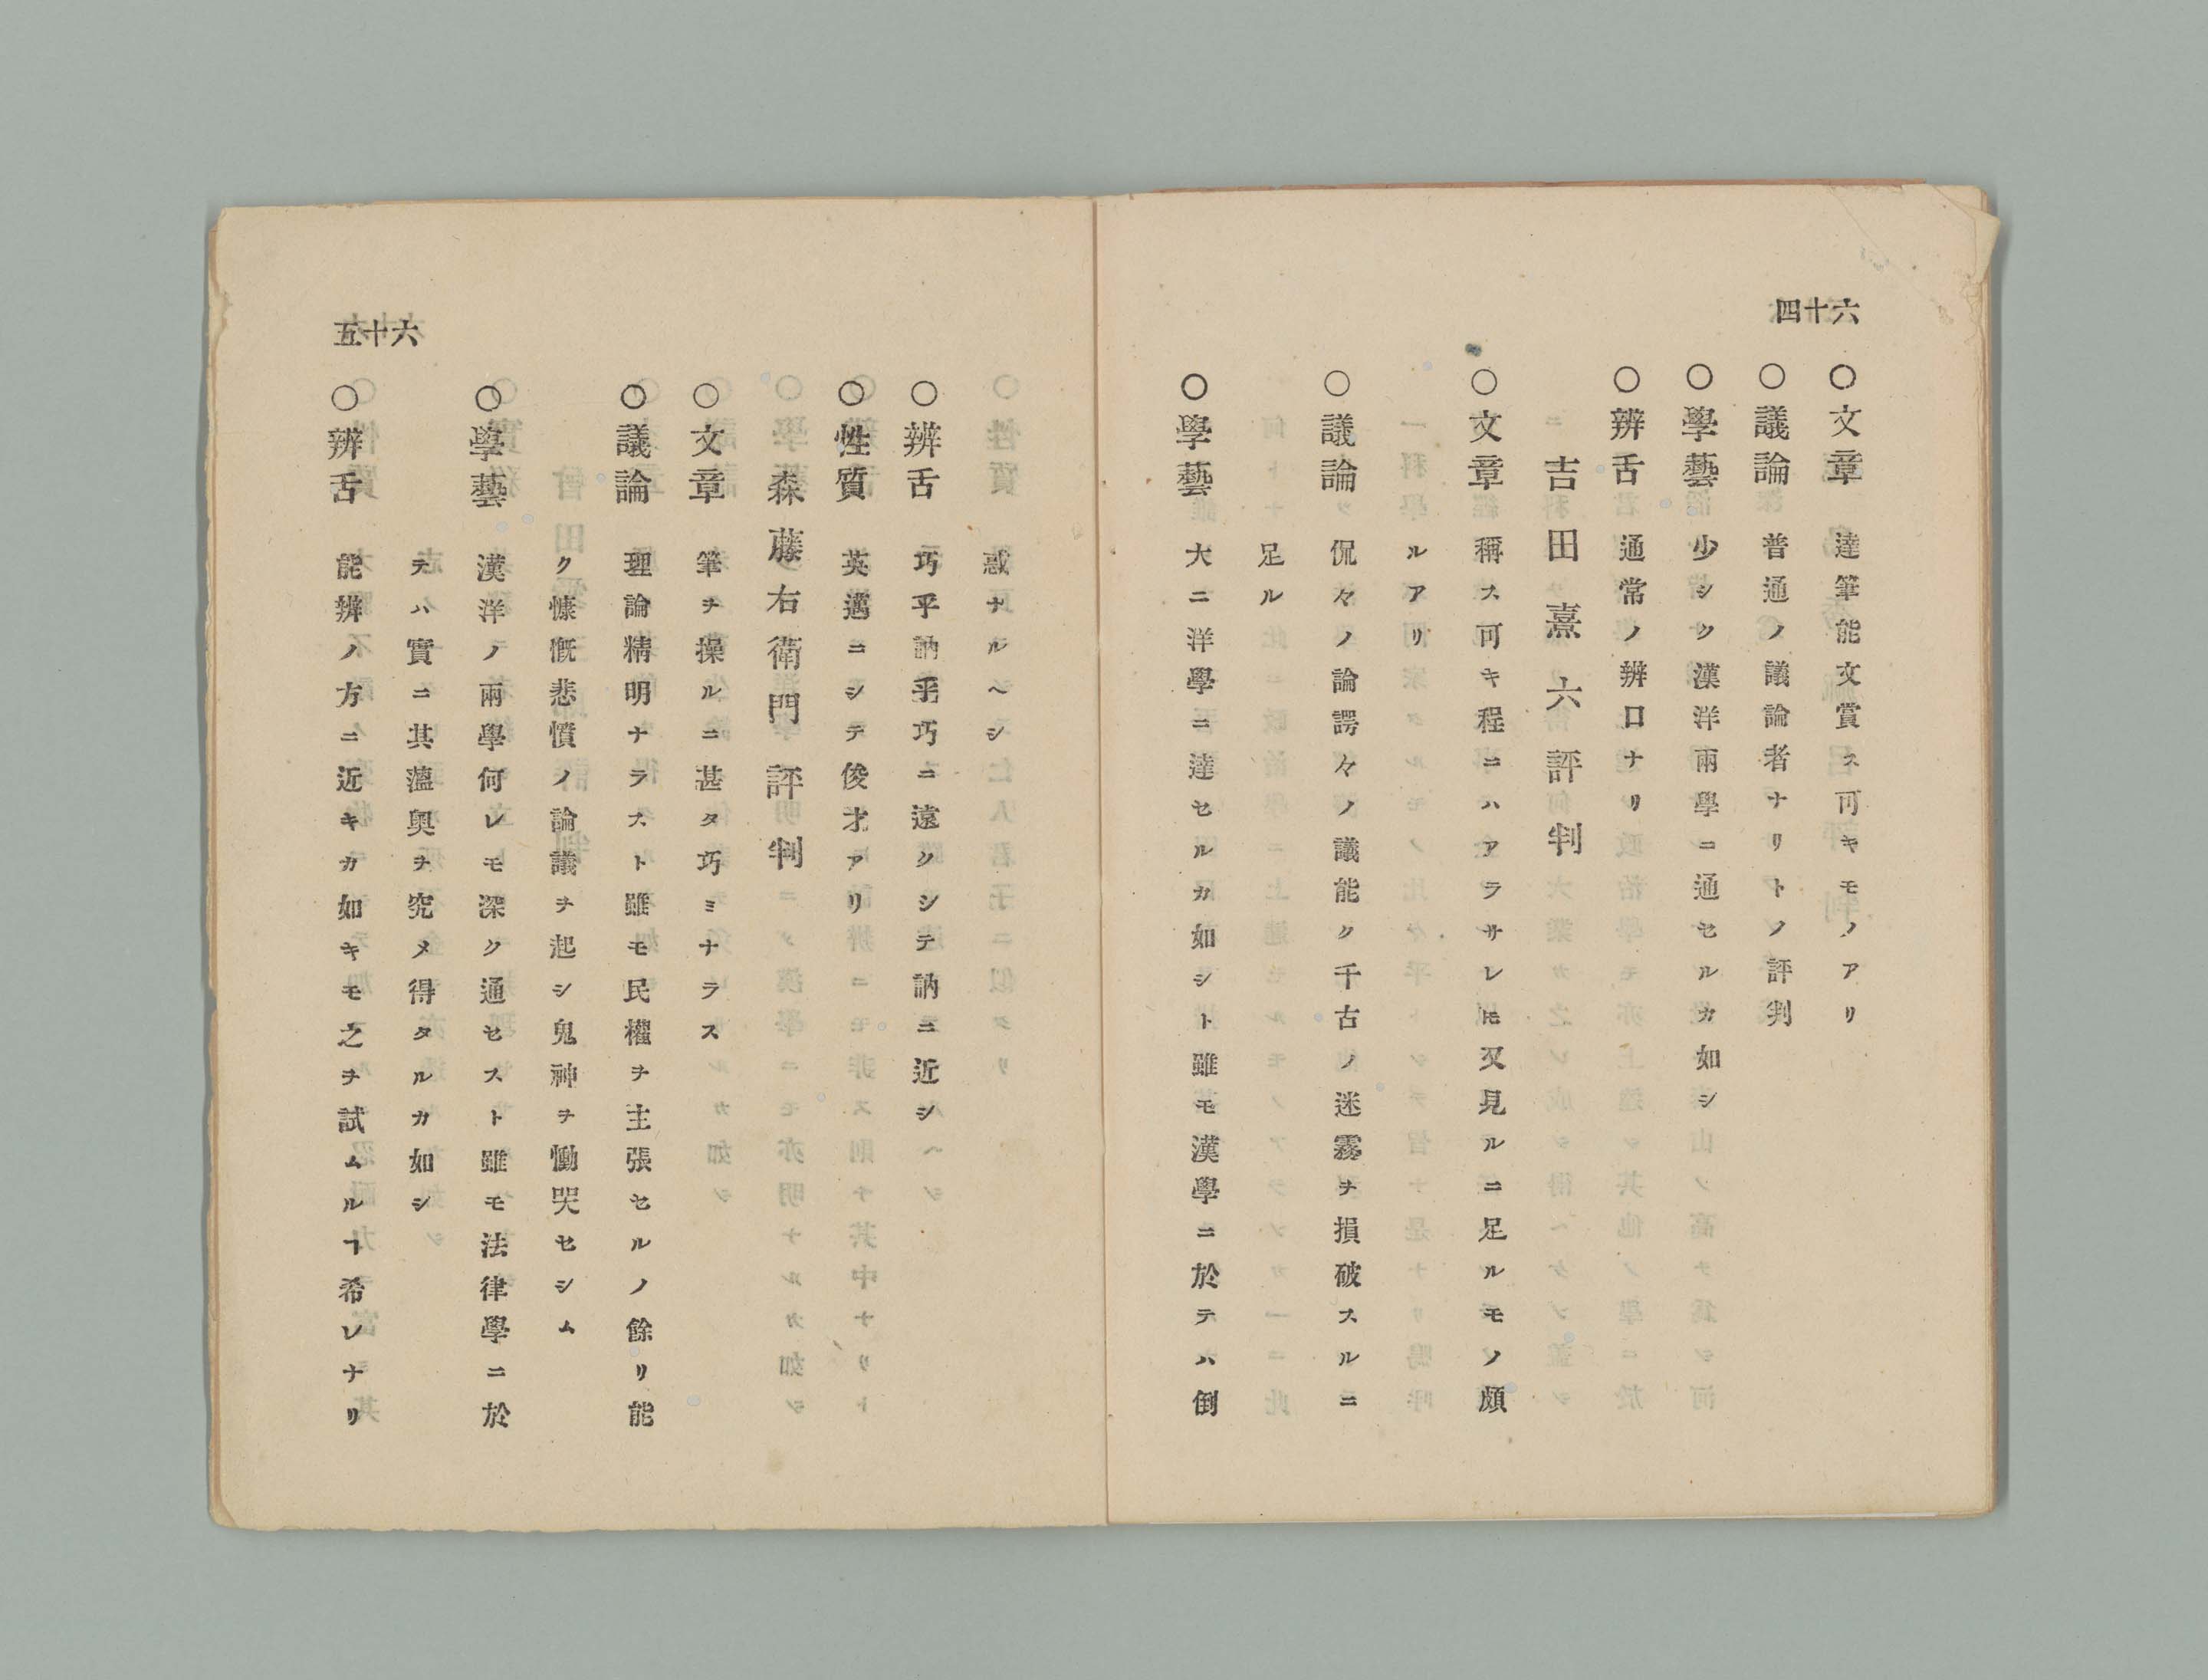 六十四
○文章 達筆能文賞ス可キモノアリ
○議論 普通ノ議論者ナリトノ評判
○學藝 少シク漢洋兩學ニ通セルカ如シ
○辨舌 通常ノ辨口ナリ
吉田熹六評判
○文章 稱ス可キ程ニハアラサレ𪜈又見ルニ足ルモノ頗
ルアリ
○議論 侃々ノ論諤々ノ議能ク千古ノ迷霧ヲ損破スルニ
足ル
○學藝 大ニ洋學ニ達セルカ如シト雖モ漢學ニ於テハ倒
惑ナルヘシ
○辨舌 巧乎訥乎巧ニ遠クシテ訥ニ近シ
○性質 英邁ニシテ俊才アリ
森藤右衛門評判
○文章 筆ヲ操ルニ甚タ巧ミナラス
○議論 理論精明ナラスト雖モ民權ヲ主張セルノ餘リ能
ク慷慨悲憤ノ論議ヲ起シ鬼神ヲ慟哭セシム
○學藝 漢洋ノ兩學何レモ深ク通セスト雖モ法律學ニ於
テハ實ニ其薀奧ヲ究メ得タルカ如シ
○辨舌 能辨ノ方ニ近キカ如キモ之ヲ試ムルヿ希レナリ
六十五